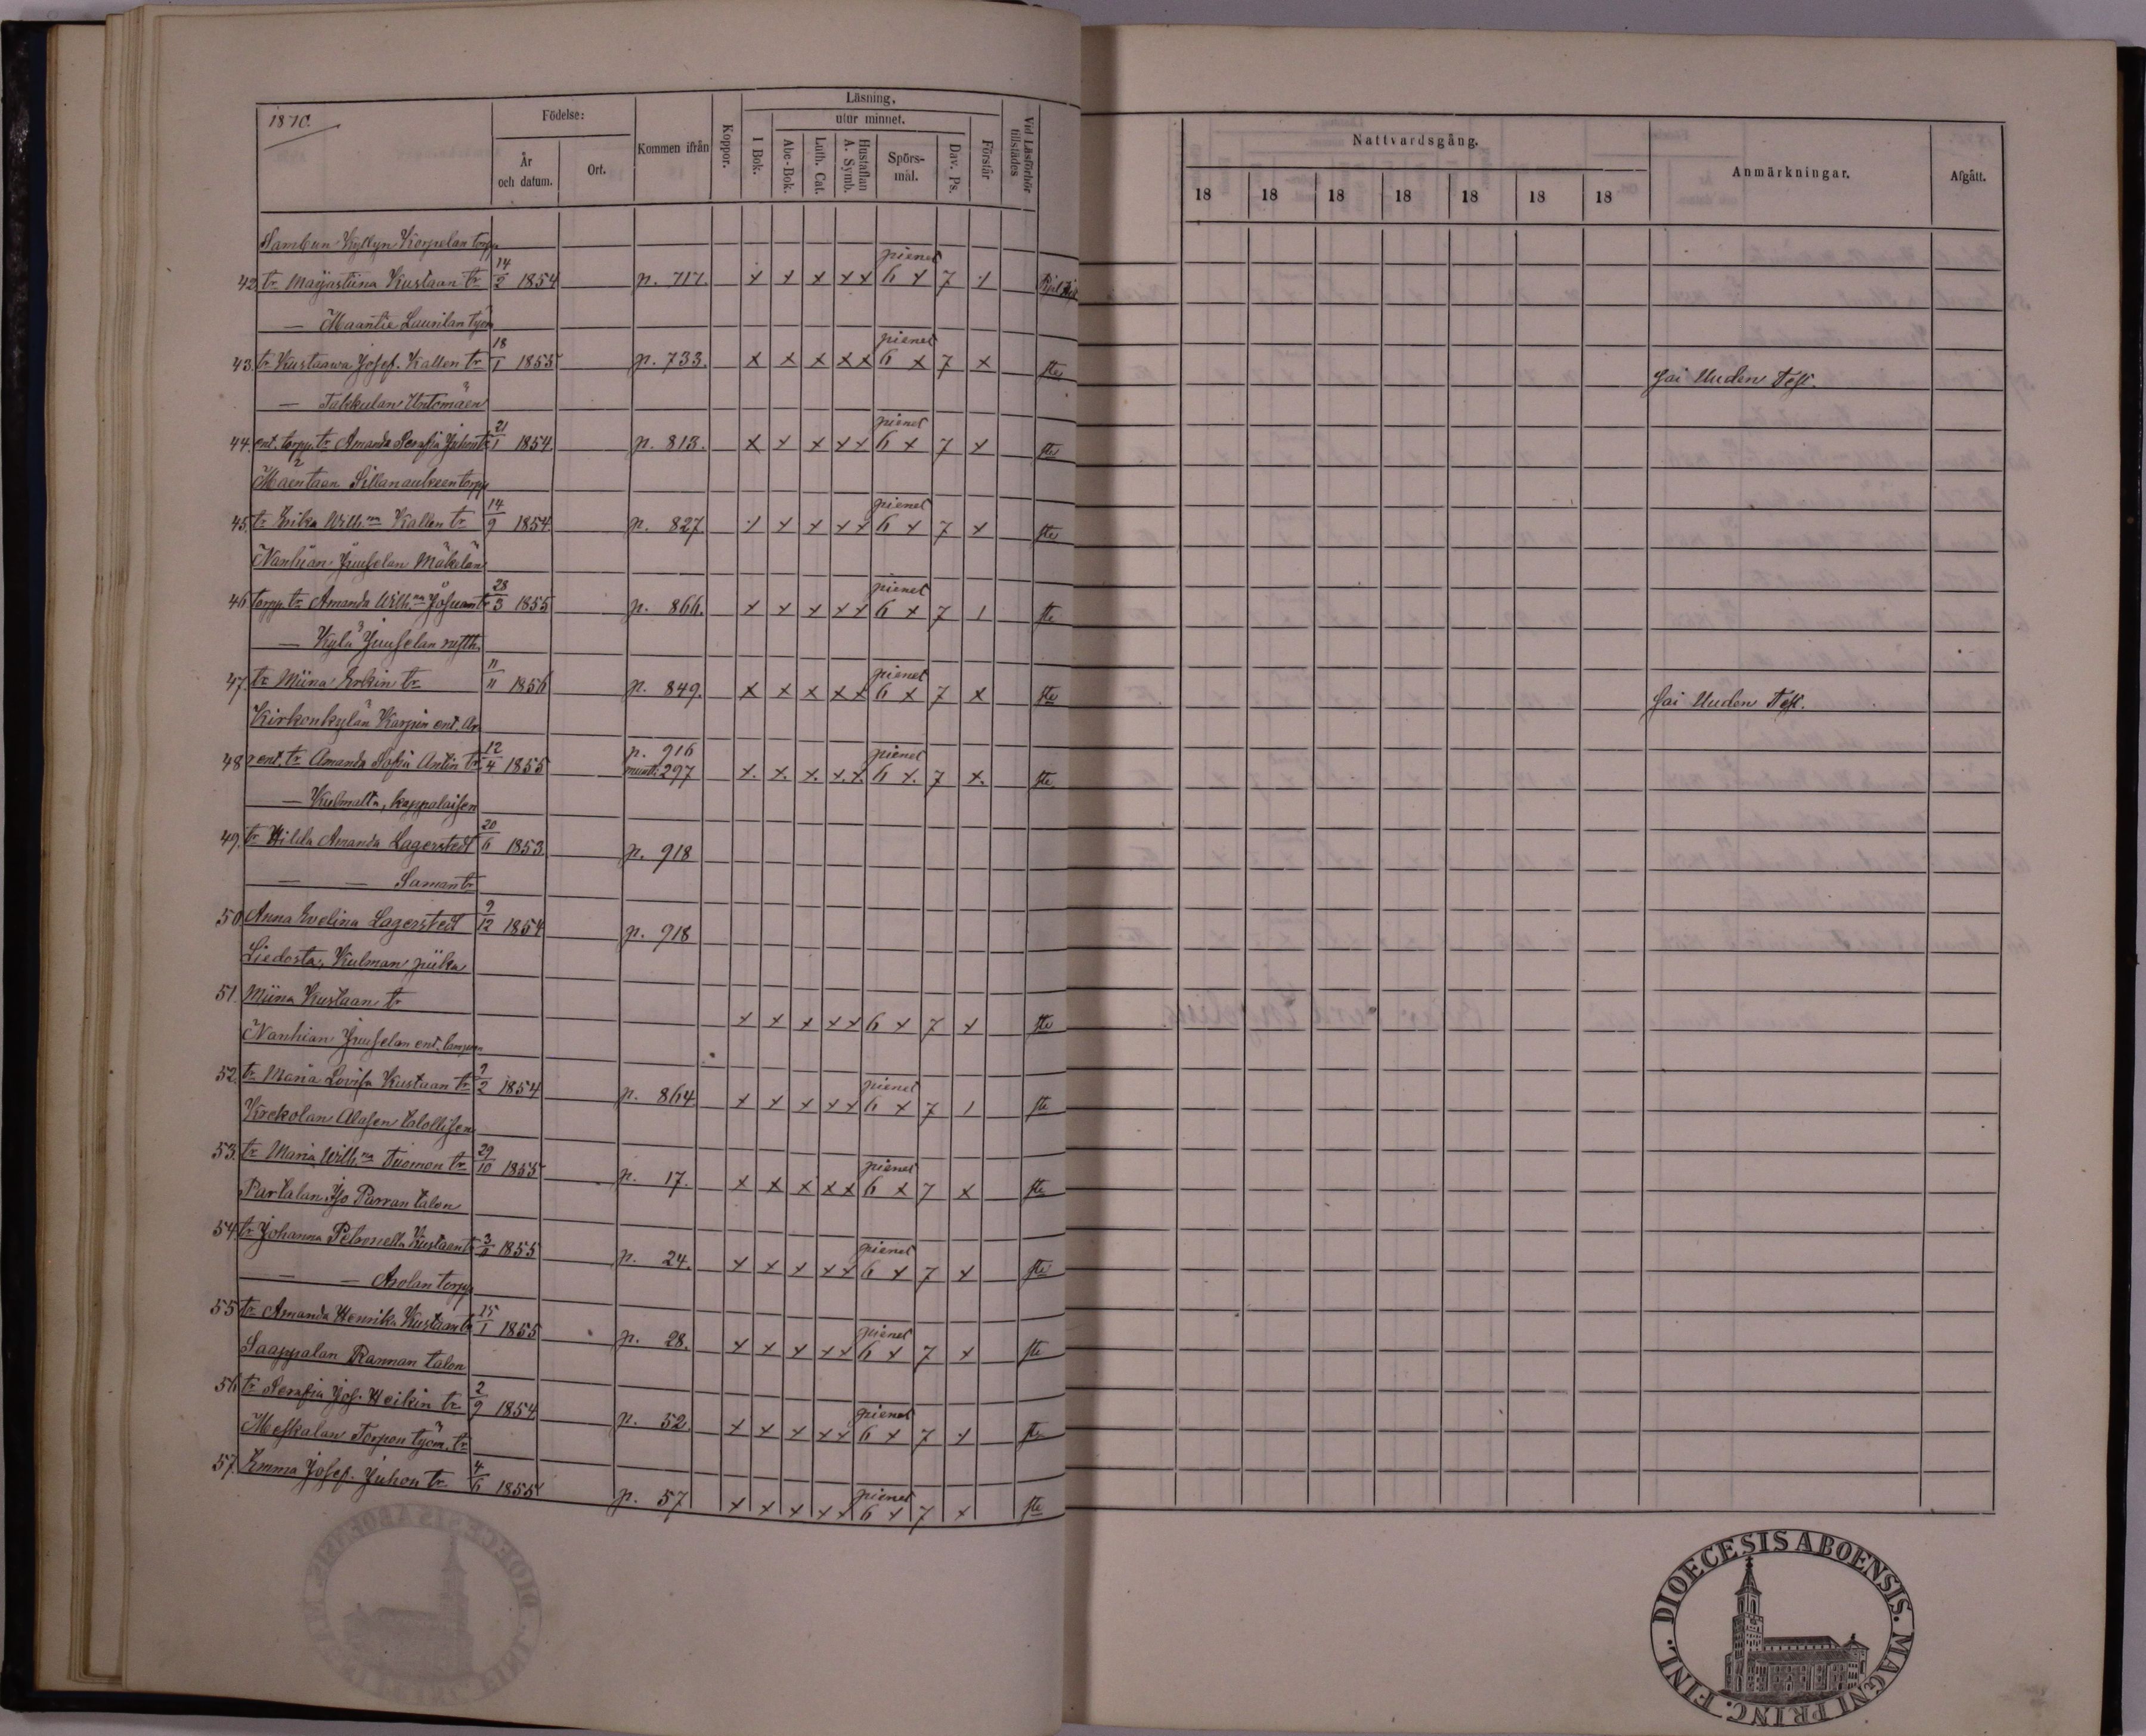 1870.
Födelse:
År och datum.
Ort.
Kommen ifrån
Koppor.
Läsning,
utur minnet.
I Bok.
Abc-Bok.
Luth. Cat.
Hustaflan A. Symb.
Spörs-mål.
Dav. Ps.
Förstår
Vid Läsförhör tillstädes
Nattvardsgång.
18 18 18 18 18 18 18
Anmärkningar.
Afgått.
Korpelan torp
pienet
42. tr. Majastiina Kustaan tr. 14/2 1854 p. 717. x x x x x 6 x 7 x
— Maantie Laurilan työm
pienet
43. tr. Kustaawa Josef. Kallen tr. 18/1 1855 p. 733. x x x x x 6 x 7 x Sai Uuden Test.
— Takkulan Untomäen
pienet
44. ent. torpp. tr. Amanda Serafia Juhan tr. 21/1 1854 p. 813. x x x x x 6 x 7 x
Mäentaan Sillanaukeen torpp
pienet
45. tr. Erika Wilhna Kallen tr. 14/9 1854 p. 827. x x x x x 6 x 7 x
Nanhian Juuselan Mäkelän
pienet
46 torpp. tr. Amanda Wilh.na Josuan tr. 28/3 1855 p. 866. x x x x x 6 x 7
— Kylä Juuselan rusth.
pienet
47. tr. Miina Erkin tr. 11/11 1856 p. 849. x x x x x 6 x 7 x Sai Uuden Test.
Kirkonkylän Karpin ent. Ar
p. 916 pienet
48 rent. tr. Amanda Sofia Antin tr. 12/4 1855 297 x. x. x. x. x 6 x. 7 x.
— Kulmalta, kappalaisen
49. tr. Hilda Amanda Lagerstedt 20/6 1853 p. 918
— — Saman tr
50. Anna Evelina Lagerstedt 9/12 1854 p. 918
Liedosta, Kulman piika
51. Miina Kustaan tr x x x x x 6 x 7 x
Nanhian Juuselan ent.
pienet
52. tr. Maria Lovisa Kustaan tr. 7/2 1854 p. 864. x x x x x 6 x 7
Krekolan Alasen talollisen
pienet
53. tr. Maria Wilh.na Tuomon tr. 29/10 1855 p. 17. x x x x x 6 x 7 x
Partalan Iso Parran talon
pienet
54 tr. Johanna Petronella Kustaan tr 3/11 1855 p. 24. x x x x x 6 x 7 x
— — Arolan torpp
pienet
55 tr. Amanda Henrika Kustaan tr 15/1 1855 p. 28. x x x x x 6 x 7 x
Saappalan Rannan talon
pienet
56 tr. Serafia Jos. Heikin tr. 2/9 1854 p. 52. x x x x x 6 x 7 x
Meskalan Torpon työm. tr
pienet
57. Emma Josef. Juhon tr. 4/6 1855 p. 57 x x x x x 6 x 7 x
DIOECESIS ABOENSIS. MAGNI PRINC. FINL.